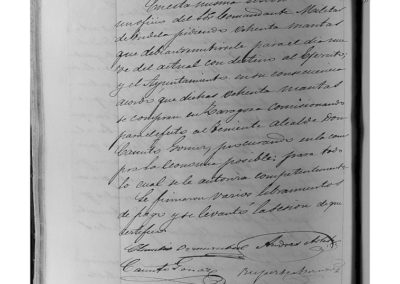 En esta misma sesión
un oficio del Sr. Comandante Militar
de Tudela pidiendo ochenta mantas
que deberan remitirsele para el dia nue-
ve del actual con destino al Ejercito;
y el Ayuntamiento en su consecuencia
acordó que dichas ochenta mantas
se compren en Zaragoza comisionando
para el efecto al Teniente alcalde Don
Camilo Gomez, procurando en la com-
pra la economia posible; para to-
do lo cual se le autoriza competentemente
Se firmaron varios libramientos
de pago y se levantó la sesion de que
certifico.
Andres
Camilo Gomez